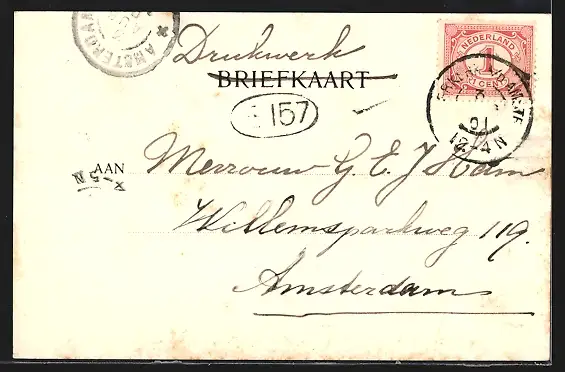 AMSTERDAM
Drukwerk
BRIEFKAART
157
NEDERLAND
1
CENT
01
12-4N
AAN
Merrouw G. E. J Ham
Willemsparkweg 119.
Amsterdam